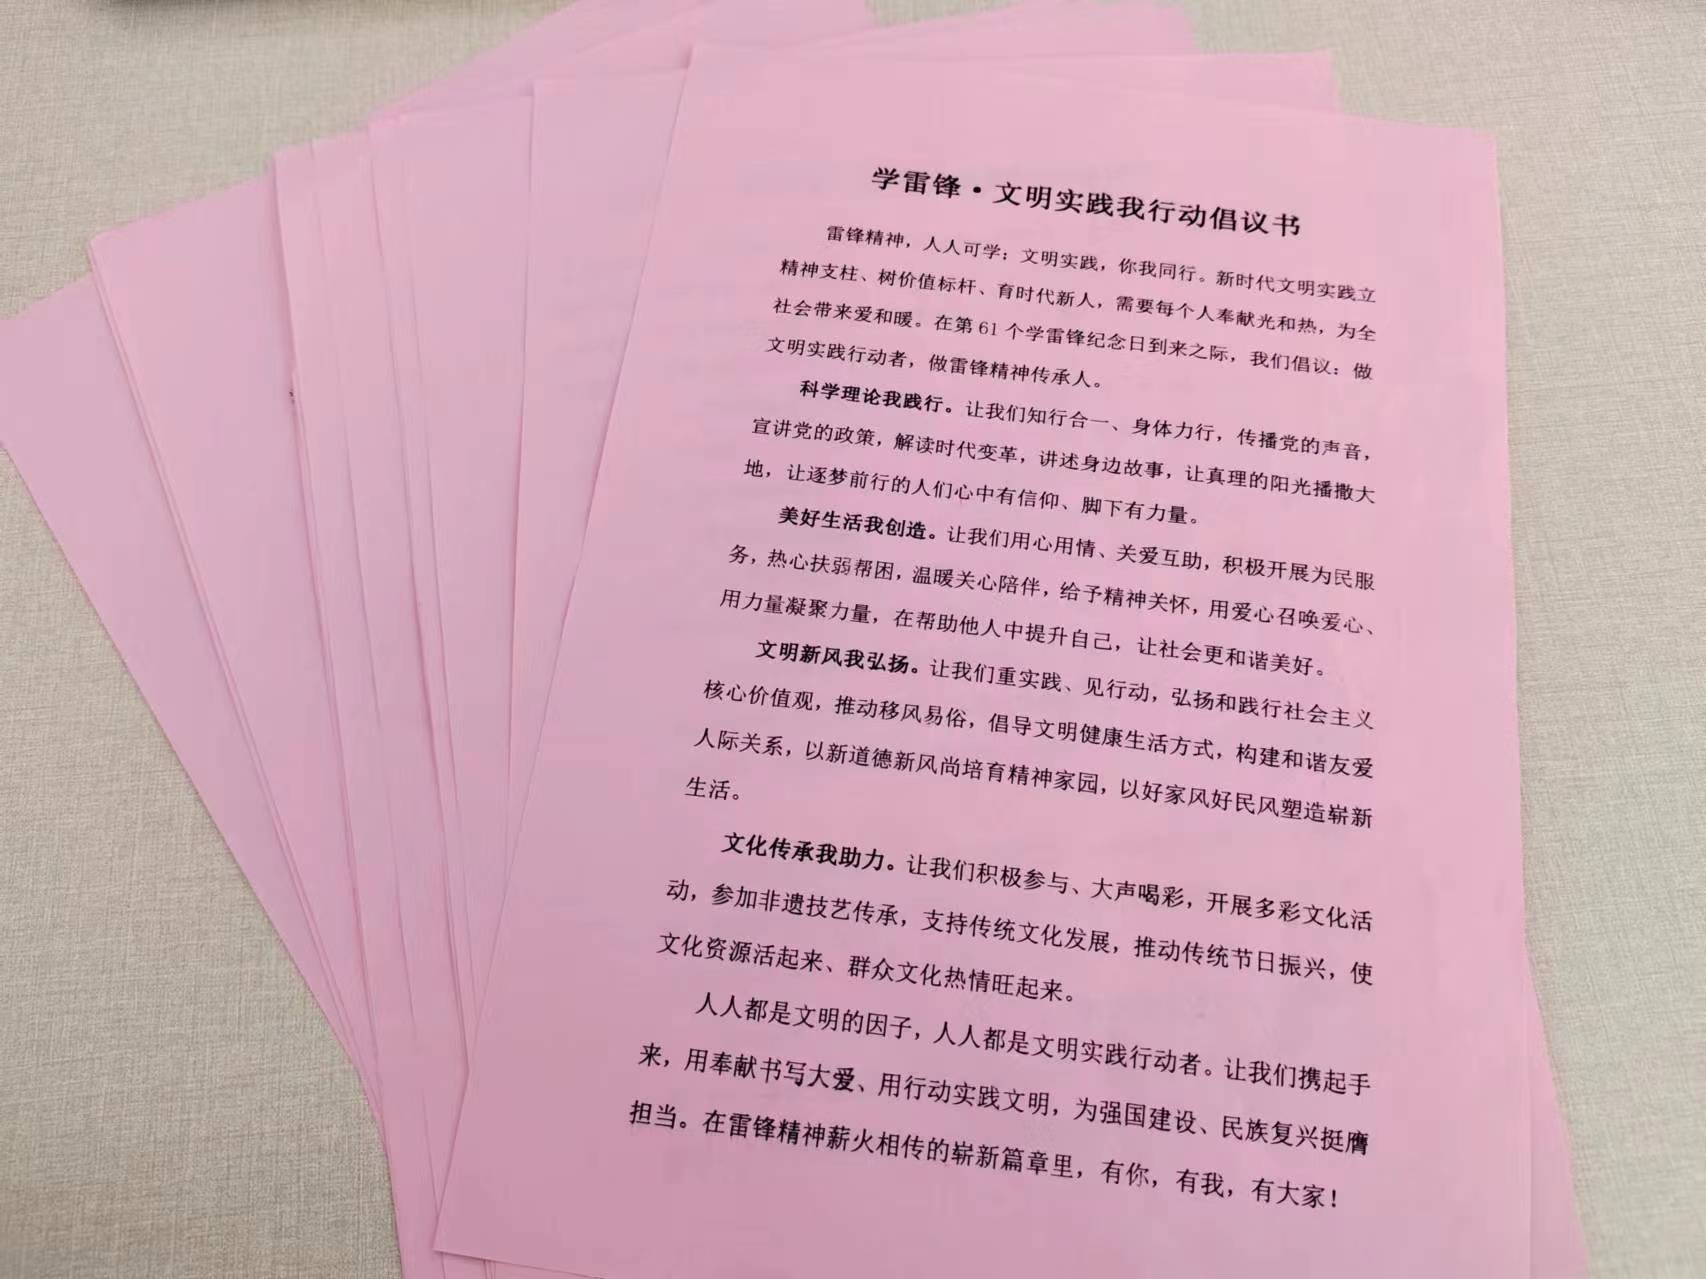 学雷锋·文明实践我行动倡议书
雷锋精神，人人可学；文明实践，你我同行。新时代文明实践立
精神支柱、树价值标杆、育时代新人，需要每个人奉献光和热，为全
社会带来爱和暖。在第 61 个学雷锋纪念日到来之际，我们倡议：做
文明实践行动者，做雷锋精神传承人。
科学理论我践行。让我们知行合一、身体力行，传播党的声音，
宣讲党的政策，解读时代变革，讲述身边故事，让真理的阳光播撒大
地，让逐梦前行的人们心中有信仰、脚下有力量。
美好生活我创造。让我们用心用情、关爱互助，积极开展为民服
务，热心扶弱帮困，温暖关心陪伴，给予精神关怀，用爱心召唤爱心、
用力量凝聚力量，在帮助他人中提升自己，让社会更和谐美好。
文明新风我弘扬。让我们重实践、见行动，弘扬和践行社会主义
核心价值观，推动移风易俗，倡导文明健康生活方式，构建和谐友爱
人际关系，以新道德新风尚培育精神家园，以好家风好民风塑造崭新
生活。
文化传承我助力。让我们积极参与、大声喝彩，开展多彩文化活
动，参加非遗技艺传承，支持传统文化发展，推动传统节日振兴，使
文化资源活起来、群众文化热情旺起来。
人人都是文明的因子，人人都是文明实践行动者。让我们携起手
来，用奉献书写大爱、用行动实践文明，为强国建设、民族复兴挺膺
担当。在雷锋精神薪火相传的崭新篇章里，有你，有我，有大家！